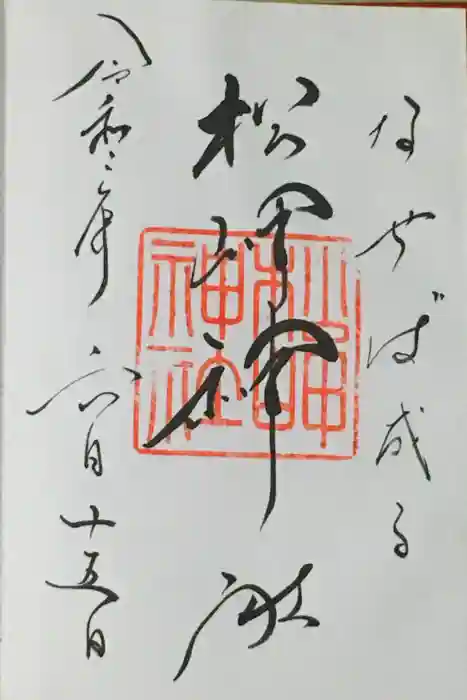 なせば成る
松岬神社
松岬神社
令和二年六月十五日